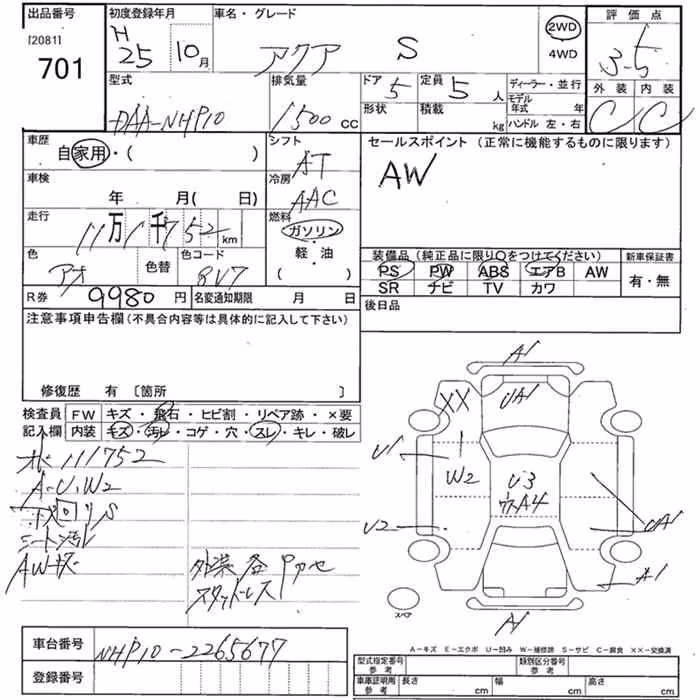 出品番号
[20811
701
初度登録年月
H 25 10月
車名・グレード
アクア S
2WD
4WD
評価点
3.5
外装 内装
C C
型式
DAA-NHP10
排気量
1500 cc
ドア 5
形状
定員 5 人
積載 kg
ディーラー・並行
モデル年式 年
ハンドル 左・右
車歴
自家用・( )
シフト
AT
セールスポイント (正常に機能するものに限ります)
AW
車検
年 月( 日)
冷房
AAC
走行
11万1千752 km
燃料
ガソリン
・軽・油
( )
色
アオ
色替
色コード
8V7
装備品 (純正品に限り○をつけてください)
PS PW ABS エアB AW
SR ナビ TV カワ
新車保証書
有・無
R券 9980 円
名変通知期限 月 日
後日品
注意事項申告欄(不具合内容等は具体的に記入して下さい)
修復歴 有 〔箇所 〕
検査員
記入欄
FW キズ・飛石・ヒビ割・リペア跡・×要
内装 キズ・汚レ・コゲ・穴・スレ・キレ・破レ
111752
A-U.W2
シート汚レ
AWキズ
外装各Pカセ
スタッドレス
A1
XX
UA1
U1
W2
U3
A4
U2
UA1
A1
スペア
A1
A-キズ E-エクボ U-凹み W-補修跡 S-サビ C-腐食 ××-交換済
車台番号
NHP10-2265677
登録番号
型式指定番号 参考
類別区分番号 参考
車庫証明用 参考
長さ cm
幅 cm
高さ cm